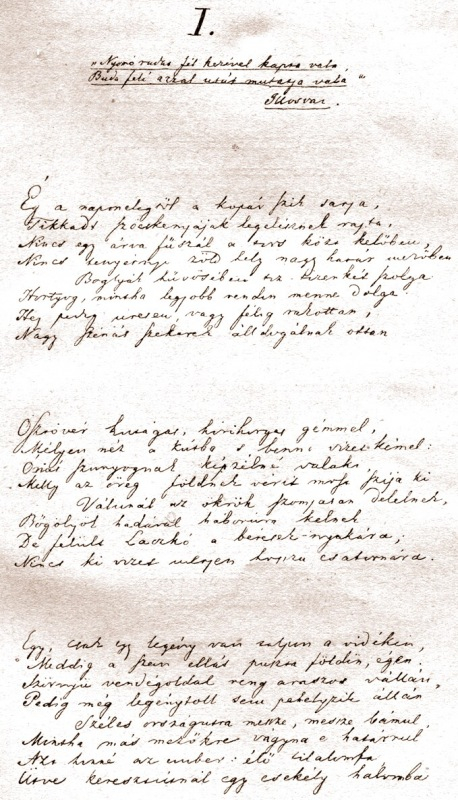 I.
„Nyomó rudat fél kezével kapta vala,
Buda felé azzal utat mutatja vala"
Ilosvai.
Ég a naptól a kopár szik sarja,
Tikkadt szöcskenyájak legelésznek rajta,
Nincs egy árva fűszál a tors közt kelőben,
Nincs tenyérnyi zöld hely nagy határ mezőben
Boglyák hüvösében tiz-tizenkét szolga
Hortyog, mintha legjobb renden menne dolga
Hej pedig üresen, vagy félig rakottan,
Nagy szénás szekerek álldogálnak ottan
Ösztövér kutágas, hórihorgas gémmel,
Mélyen néz a kútba s benne vizet kémel:
Óriás szunyognak képzelné valaki
Melly az öreg földnek vérit most szíja ki
Válunál az ökrök szomjasan delelnek,
Bögölyök hadával háborúra kelnek
De felült Laczkó a béresek nyakára,
Nincs ki vizet merjen hosszu csatornára.
Egy, csak egy legény van talpon a vidéken,
Meddig a szem ellát puszta földön, égen,
Szörnyü vendégoldal reng araszos vállán,
Pedig még legénytoll sem pehelyzik állán
Széles országutra messze, messze bámul,
Mintha más mezőkre vágyna e határrul
Azt hinné az ember: élő tilalomfa
Ütve keresztútnál egy csekély halomba